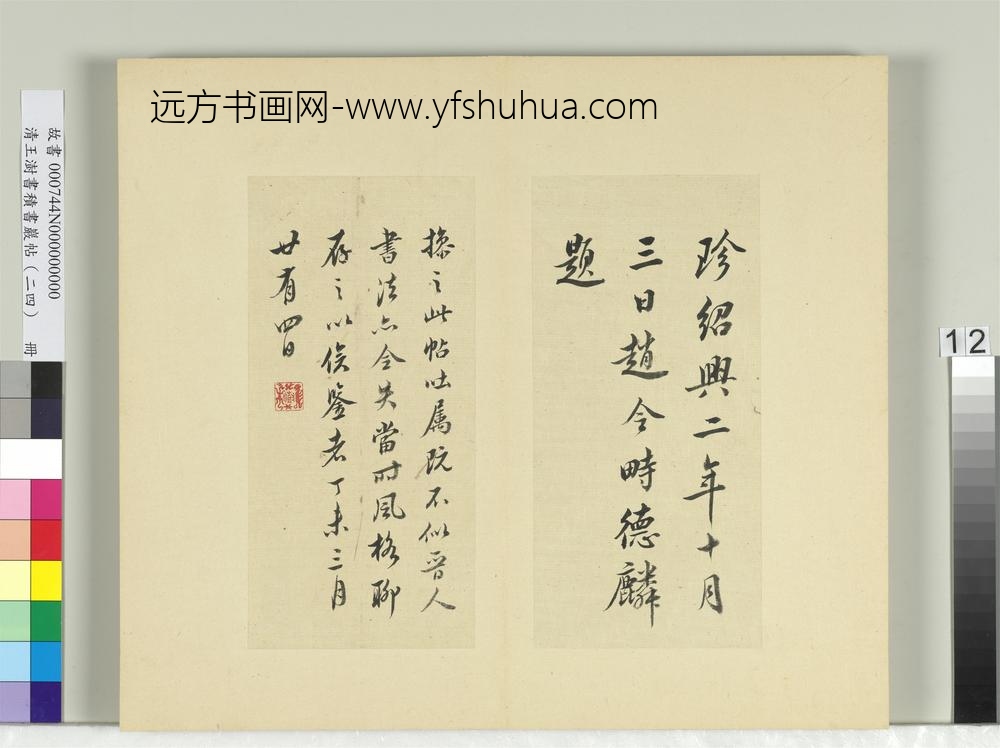 远方书画网-www.yfshuhua.com
珍紹興二年十月
三日趙令畤德麟
題
操之此帖吐属既不似晉人
書法亦全失當時風格聊
存之以俟鑒者丁未三月
廿有四日
故書 000744N000000000
清王澍書積書巖帖（二四） 冊
12